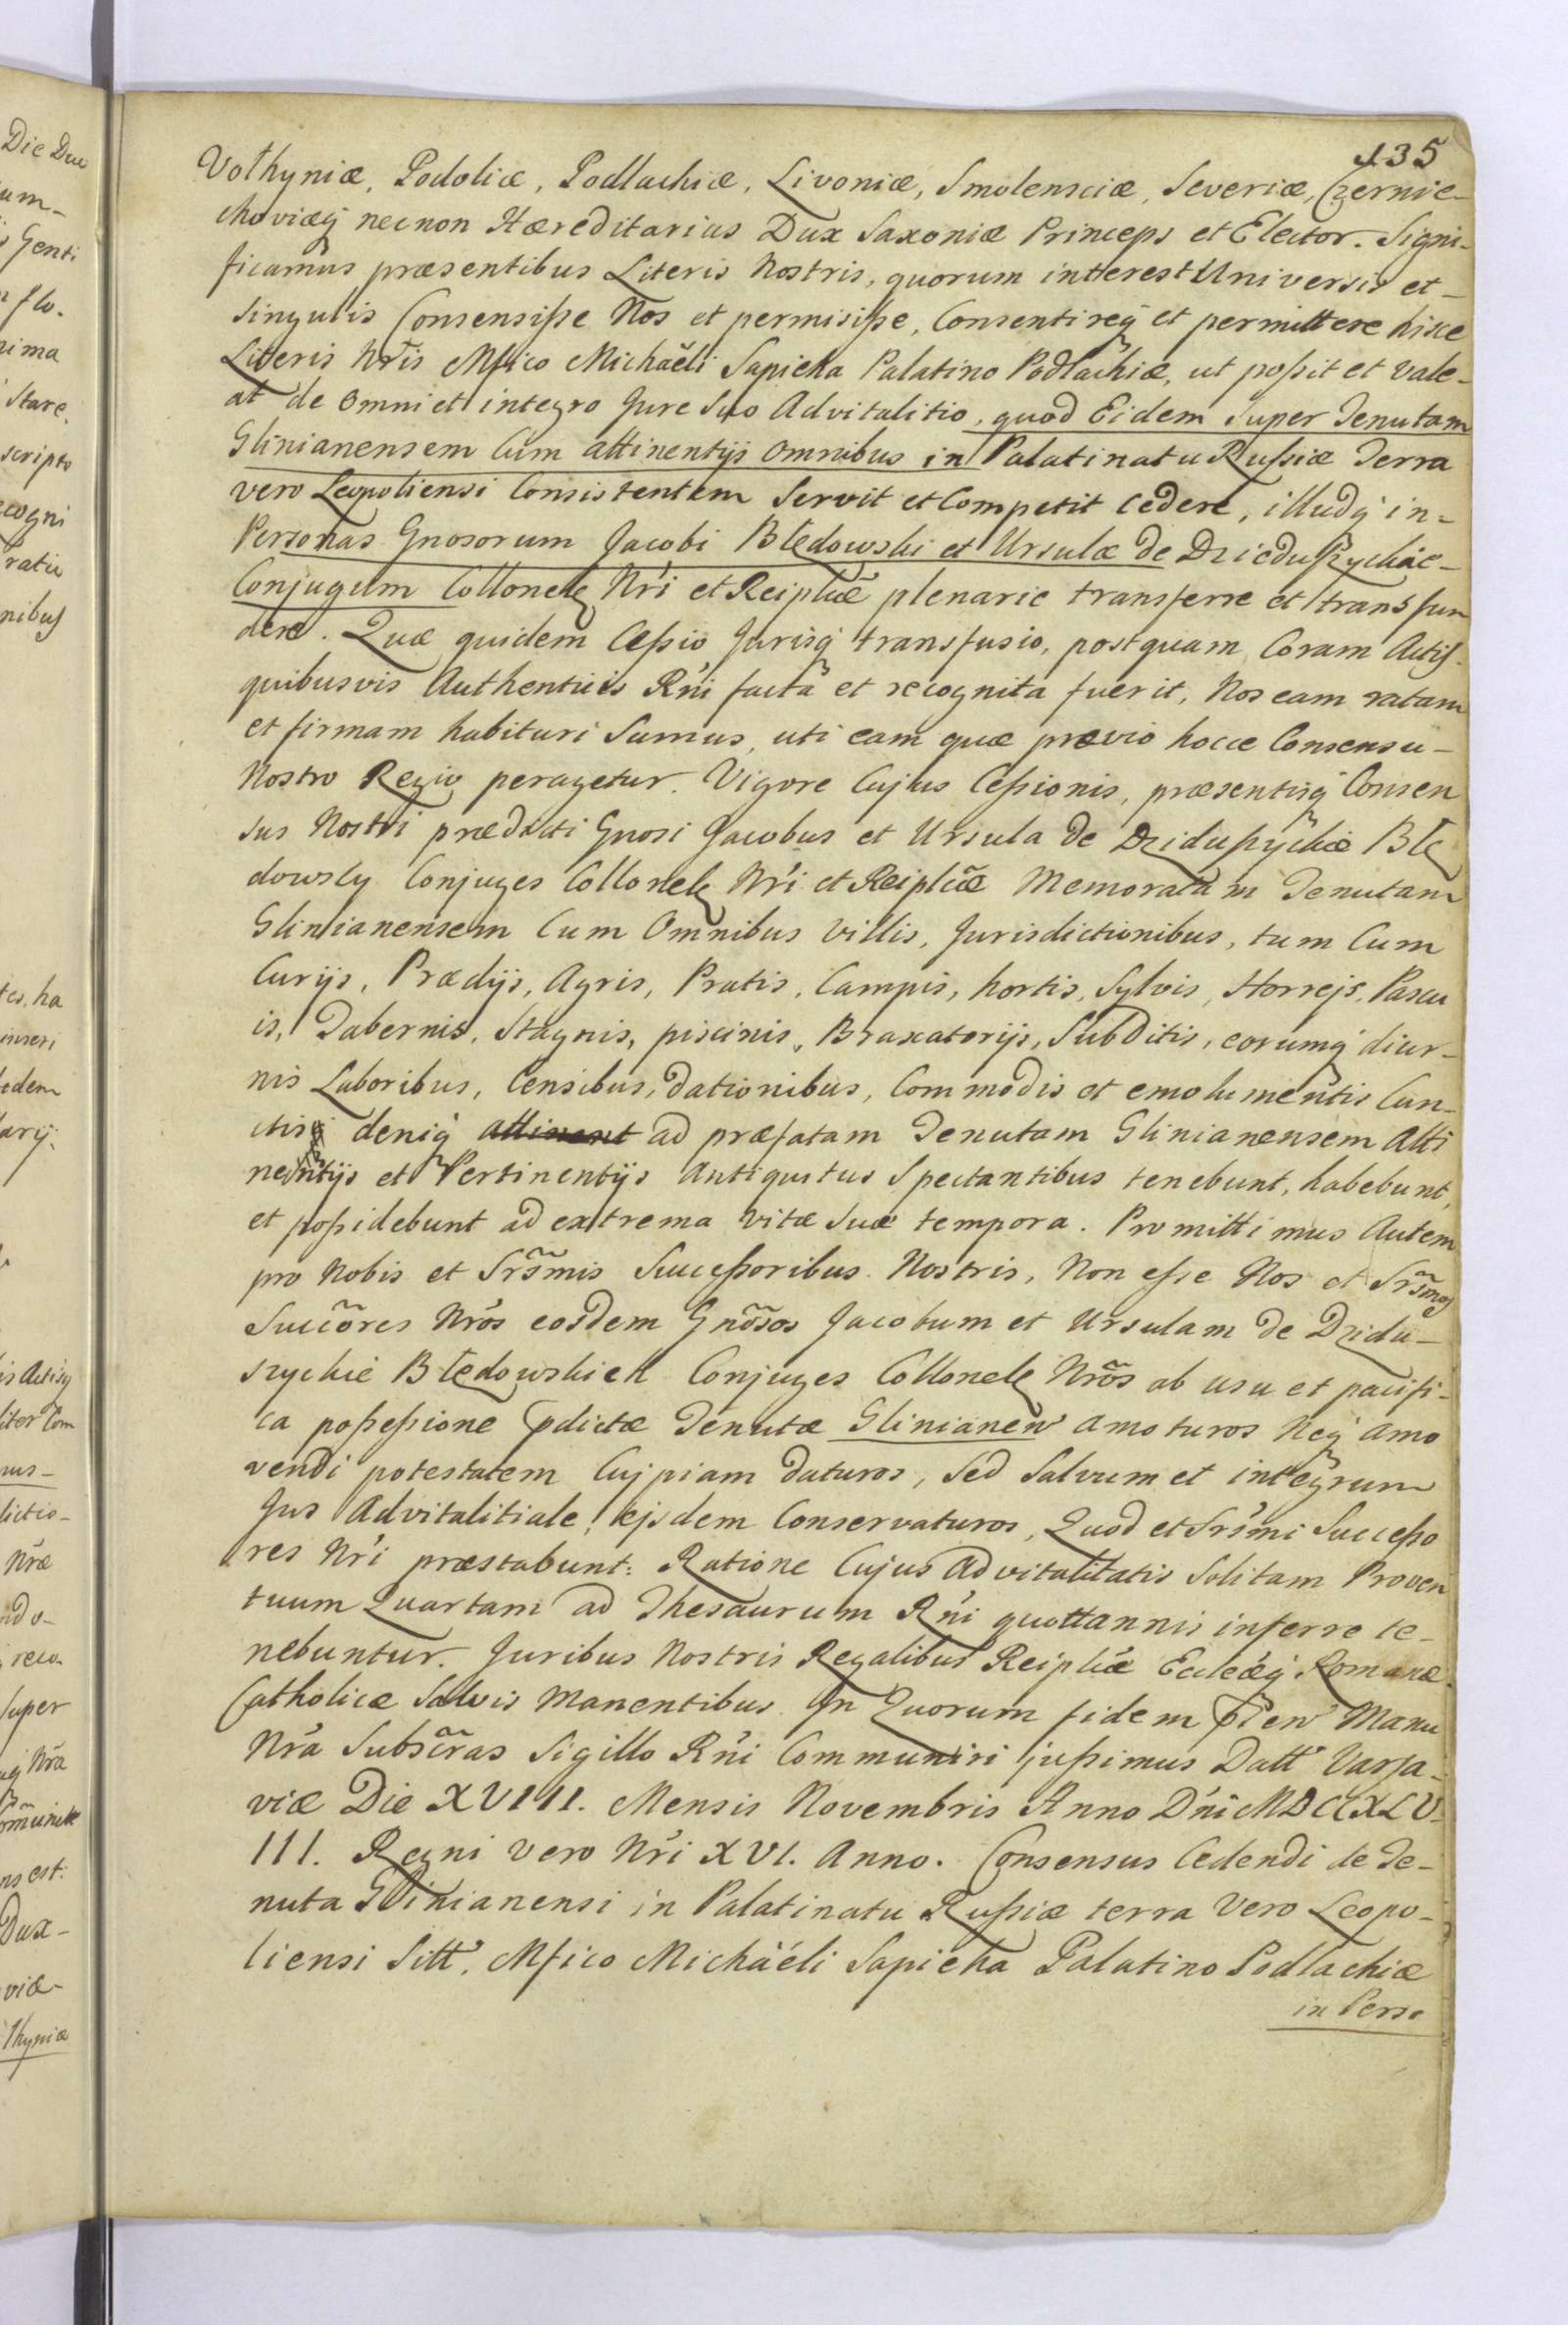 135
Volhyniæ, Podoliæ, Podlachiæ, Livoniæ, Smolensciæ, Severiæ, Czernie-
choviæq́ necnon Hæreditarius Dux Saxoniæ Princeps et Elector. Signi-
ficamus præsentibus Literis Nostris, quorum interest Universis et-
singulis Consensiſse Nos et permisiſse, Consentireq́ et permittere hisce
Literis Nr̃is Mfico Michaëli Sapieha Palatino Podlachiæ, ut poſsit et vale-
at de omni et integro Jure suo Advitalitio, quod Eidem super Tenutam
Glinianensem Cum attinentijs omnibus in Palatinatu Ruſsiæ Terra
vero Leopoliensi Consistentem servit et Competit cedere, illudq́ in-
Personas Gnosorum Jacobi Błędowski et Ursulæ de Dzieduſzychie-
Conjugum Collonelę Nr̃i et Reiplicæ plenarie transferre et transfun
dere. Quæ quidem Ceſsio Jurisq́ transfusio, postquam Coram Actis-
quibusvis Authenticis Rńi facta et recognita fuerit, Nos eam ratam
et firmam habituri sumus, uti eam quæ prævio hocce Consensu-
Nostro Regio peragetur. Vigore Cujus Ceſsionis, præsentisq́ Consen
sus Nostri prædicti Gnosi Jacobus et Ursula de Dziduſzychie Błę
dowscy Conjuges Collonelę Nŕi et Reiplicæ Memoratam Tenutam
Glinianensem Cum Omnibus Villis, Jurisdictionibus, tum Cum
Curijs, Prædijs, Agris, Pratis, Campis, hortis, Sylvis, Horrejs, Pascu
is, Tabernis, Stagnis, piscinis, Braxatorijs, Subditis, eorumq́ diur-
nis Laboribus, Censibus, dationibus, Commodis et emolumentis Cun-
ctis deniq́ attinent ad præfatam Tenutam Glinianensem Atti
nentijs et Pertinentijs Antiquitus Spectantibus tenebunt, habebunt,
et poſsidebunt ad extrema vitæ suæ tempora. Promittimus Autem
pro Nobis et Sr̃smis Succeſsoribus Nostris, Non eſse Nos et Sr̃smos
Succõres Nrós eosdem Gnõsos Jacobum et Ursulam de Dzidu-
szychie Błędowskich Conjuges Collonelę Nrõs ab usu et pacifi-
ca poſseſsione pdictæ Tenutæ Glinianen̄ amoturos Neq́ amo
vendi potestatem Cujpiam daturos, sed Salvum et integrum
Jus Advitalitiale ejsdem Conservaturos, Quod et Srśmi Succeſso
res Nŕi præstabunt: Ratione Cujus Advitalitatis solitam Proven
tuum Quartam ad Thesaurum Rńi quottannis inferre te-
nebuntur. Juribus Nostris Regalibus Reiplicæ Eccleæq́ Romanæ
Catholicæ Salvis manentibus. In Quorum fidem pten̄ Manu
Nrá Subscr̃as Sigillo Rńi Communiri juſsimus Datt̃ Varsa-
viæ Die XVIII. Mensis Novembris Anno Dńi MDCCXLV
III. Regni vero Nŕi XVI. Anno. Consensus Cedendi de Te-
nuta Glinianensi in Palatinatu Ruſsiæ terra Vero Leopo-
liensi Sitt̃, Mfico Michäéli Sapieha Palatino Podlachiæ
in Perso